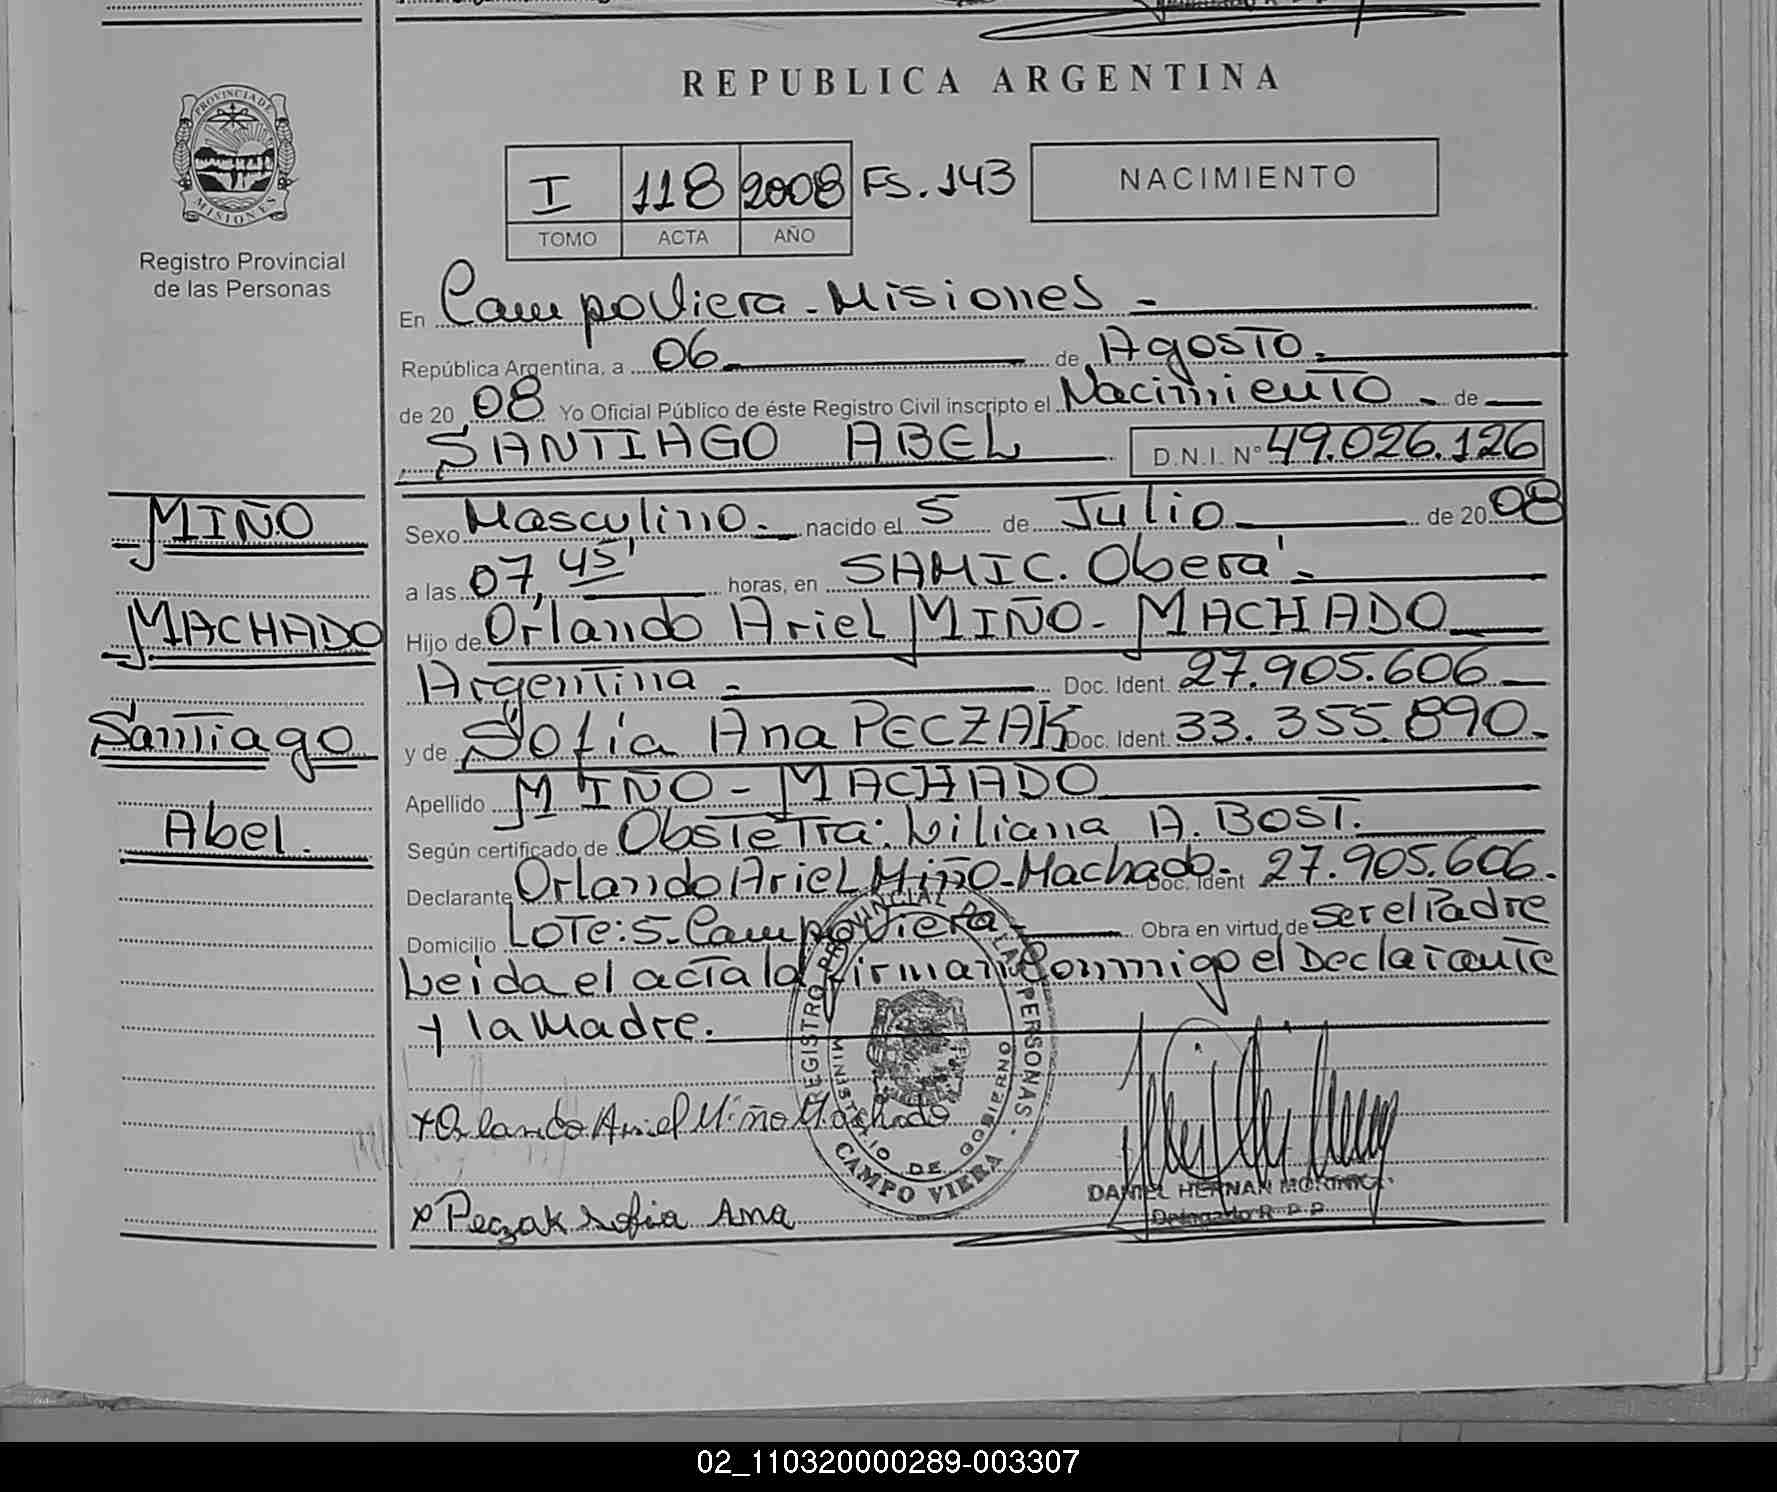 REPUBLICA ARGENTINA
PROVINCIA DE
MISIONES
Registro Provincial
de las Personas
I 118 2008 FS. 143
TOMO ACTA AÑO
NACIMIENTO
En Campo Viera - Misiones -
República Argentina, a 06 de Agosto.
de 20 08 Yo Oficial Público de éste Registro Civil inscripto el Nacimiento - de
SANTIAGO ABEL D.N.I. N° 49.026.126
MIÑO
MACHADO
Santiago
Abel.
Sexo Masculino.- nacido el 5 de Julio de 20 08
a las 07,45' horas, en SAMIC. Oberá -
Hijo de Orlando Ariel MIÑO - MACHADO
Argentina - Doc. Ident. 27.905.606
y de Sofía Ana PECZAK Doc. Ident. 33.355.890.-
Apellido MIÑO - MACHADO
Según certificado de Obstetra: Liliana A. BOST.
Declarante Orlando Ariel Miño-Machado - Doc. Ident 27.905.606.
Domicilio LOTE: 5 - Campo Viera - Obra en virtud de ser el Padre
Leida el acta la firman Conmigo el Declarante
y la Madre.
x Orlando Ariel Miño Machado
x Peczak Sofia Ana
REGISTRO PROVINCIAL DE LAS PERSONAS -
MINISTERIO DE GOBIERNO
CAMPO VIERA
DANIEL HERNAN
Delegado R P P
02_110320000289-003307